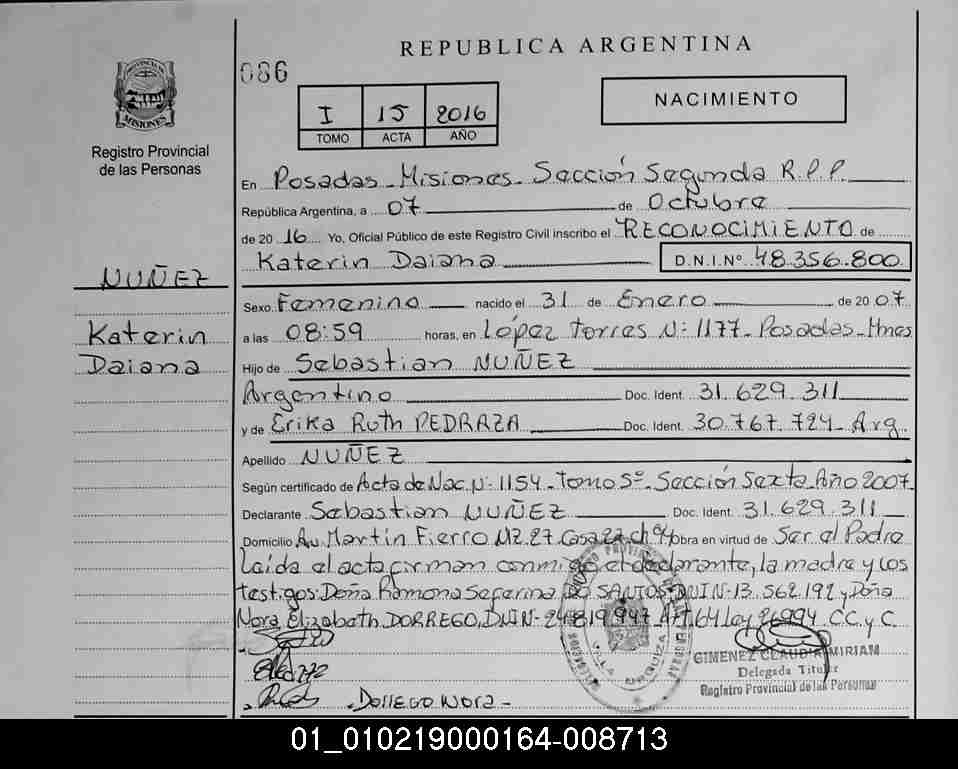 REPUBLICA ARGENTINA
086
PROVINCIA DE
MISIONES
Registro Provincial
de las Personas
I 15 2016
TOMO ACTA AÑO
NACIMIENTO
En Posadas - Misiones - Sección Segunda R.P.P.
República Argentina, a 07 de Octubre
de 2016 Yo, Oficial Público de este Registro Civil inscribo el RECONOCIMIENTO de
Katerin Daiana D.N.I.Nº 48.356.800
NUÑEZ
Katerin
Daiana
Sexo Femenino nacido el 31 de Enero de 2007
a las 08:59 horas, en López Torres Nº 1177 - Posadas - Mnes
Hijo de Sebastian NUÑEZ
Argentino Doc. Ident. 31.629.311
y de Erika Ruth PEDRAZA Doc. Ident. 30.767.724 - Arg.
Apellido NUÑEZ
Según certificado de Acta de Nac. Nº 1154 - Tomo 5º - Sección Sexta - Año 2007.
Declarante Sebastian NUÑEZ Doc. Ident. 31.629.311
Domicilio Av. Martin Fierro MZ. 27. Casa 27. ch 94 Obra en virtud de Ser el Padre
Leída el acta firman conmigo, el declarante, la madre y los
testigos: Doña Ramona Seferina DO SANTOS, DNI N- 13.562.192 y Doña
Nora Elizabeth DORREGO, DNI N- 24.819.947 Art. 64 Ley 26994 C.C. y C.
VILLA URQUIZA
GIMENEZ CLAUDIA MIRIAM
Delegada Titular
Registro Provincial de las Personas
DORREGO NORA -
01_010219000164-008713